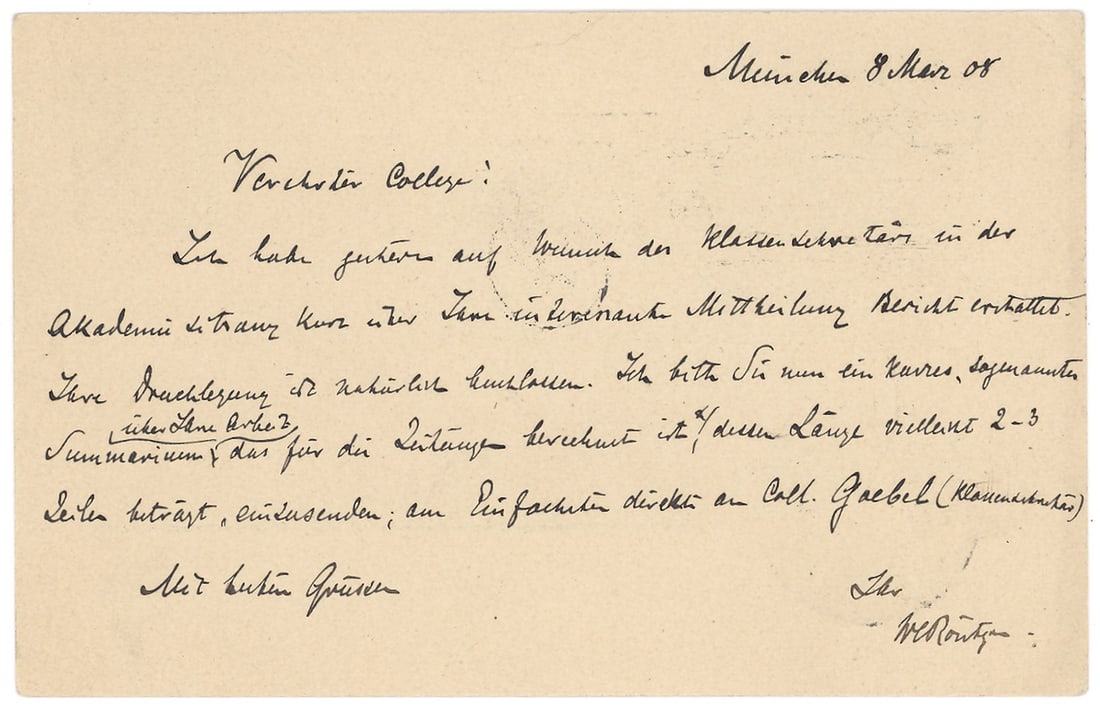 München 8 März 08
Verehrter College!
Ich habe gestern auf Wunsch des Klassensekretärs in der
Akademiesitzung kurz über Ihre interessante Mittheilung Bericht erstattet.
Ihre Drucklegung ist natürlich beschlossen. Ich bitte Sie nun ein kurzes, sogenanntes
über Ihre Arbeit
Summarium, das für die Zeitungen berechnet ist & dessen Länge vielleicht 2-3
Zeilen beträgt, einzusenden; am Einfachsten direkt an Coll. Goebel (Klassensekretär)
Mit besten Grüssen
Ihr
WCRöntgen.